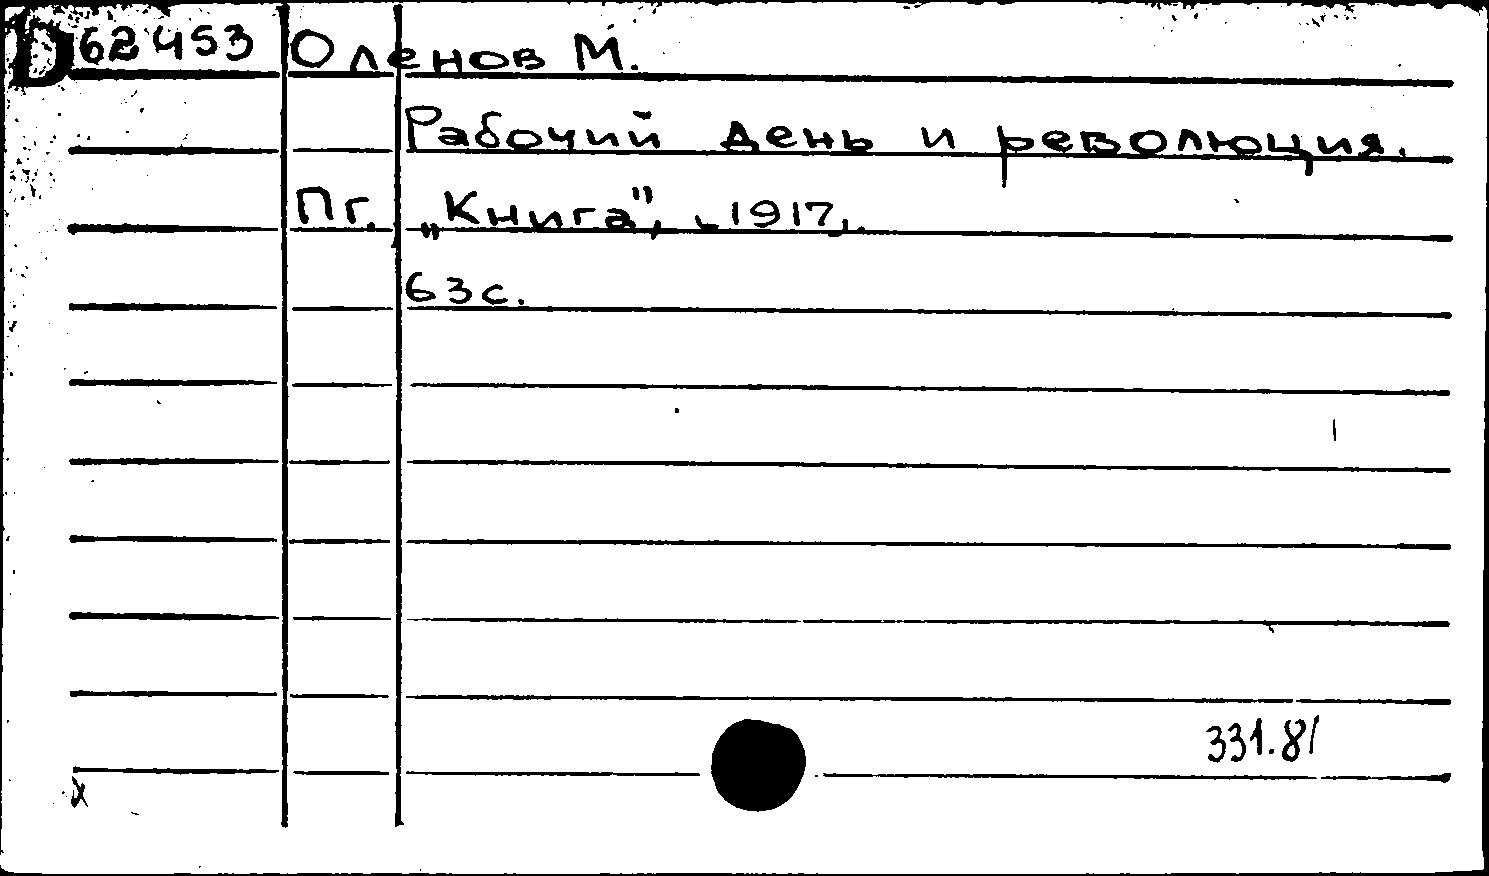 D 62453 Оленов М.
Рабочий день и революция.
Пг. „Книга", [1917].
63с.
331.81
x